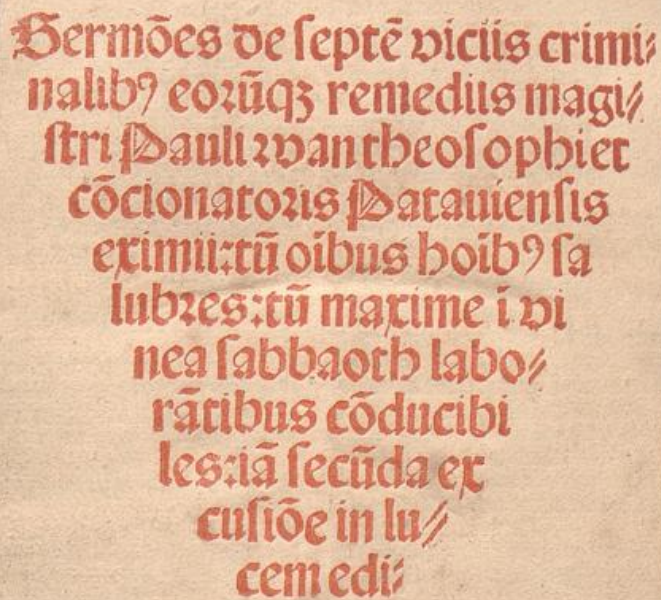 Sermōes de septē viciis crimi⸗
nalibꝰ eoꝛūqꝫ remediis magi⸗
stri Pauli wan theosophi et
cōcionatoꝛis Patauiensis
eximii:tū oībus hoībꝰ sa
lubꝛes:tū maxime ī vi
nea sabbaoth labo⸗
rātibus cōducibi
les:iā secūda ex
cusiōe in lu⸗
cem edi⸗